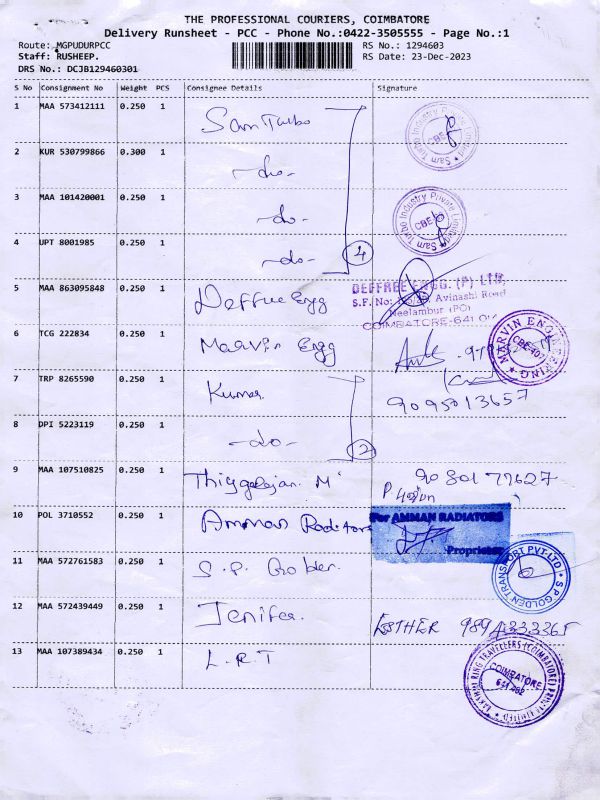 THE PROFESSIONAL COURIERS, COIMBATORE
Delivery Runsheet - PCC - Phone No.:0422-3505555 - Page No.:1
Route: MGPUDURPCC RS No.: 1294603
Staff: RUSHEEP. RS Date: 23-Dec-2023
DRS No.: DCJB129460301
S No Consignment No Weight PCS Consignee Details Signature
1 MAA 573412111 0.250 1 Sam Turbo
Sam Turbo Industry Private Limited CBE
2 KUR 530799866 0.300 1 -do-
3 MAA 101420001 0.250 1 -do-
Sam Turbo Industry Private Limited CBE
4 UPT 8001985 0.250 1 -do- 4
5 MAA 863095848 0.250 1 Deffree Engg
DEFFREE ENGG. (P) LTD,
S.F. No: Avinashi Road
Neelambur (PO)
COIMBATORE-641
6 TCG 222834 0.250 1 Marvin Engg
MARVIN ENGINEERING CBE
7 TRP 8265590 0.250 1 Kumar
9095013657
8 DPI 5223119 0.250 1 -do- 2
9 MAA 107510825 0.250 1 Thiyagalajan. M 9080177627
10 POL 3710552 0.250 1 Amman Radiators
For AMMAN RADIATORS
Proprietor
11 MAA 572761583 0.250 1 S. P. Golden.
S P GOLDEN TRANSPORT PVT LTD
12 MAA 572439449 0.250 1 Jenifer. ESTHER
13 MAA 107389434 0.250 1 L. R. T
RING TRAVELLERS (COIMBATORE) PRIVATE LIMITED
COIMBATORE